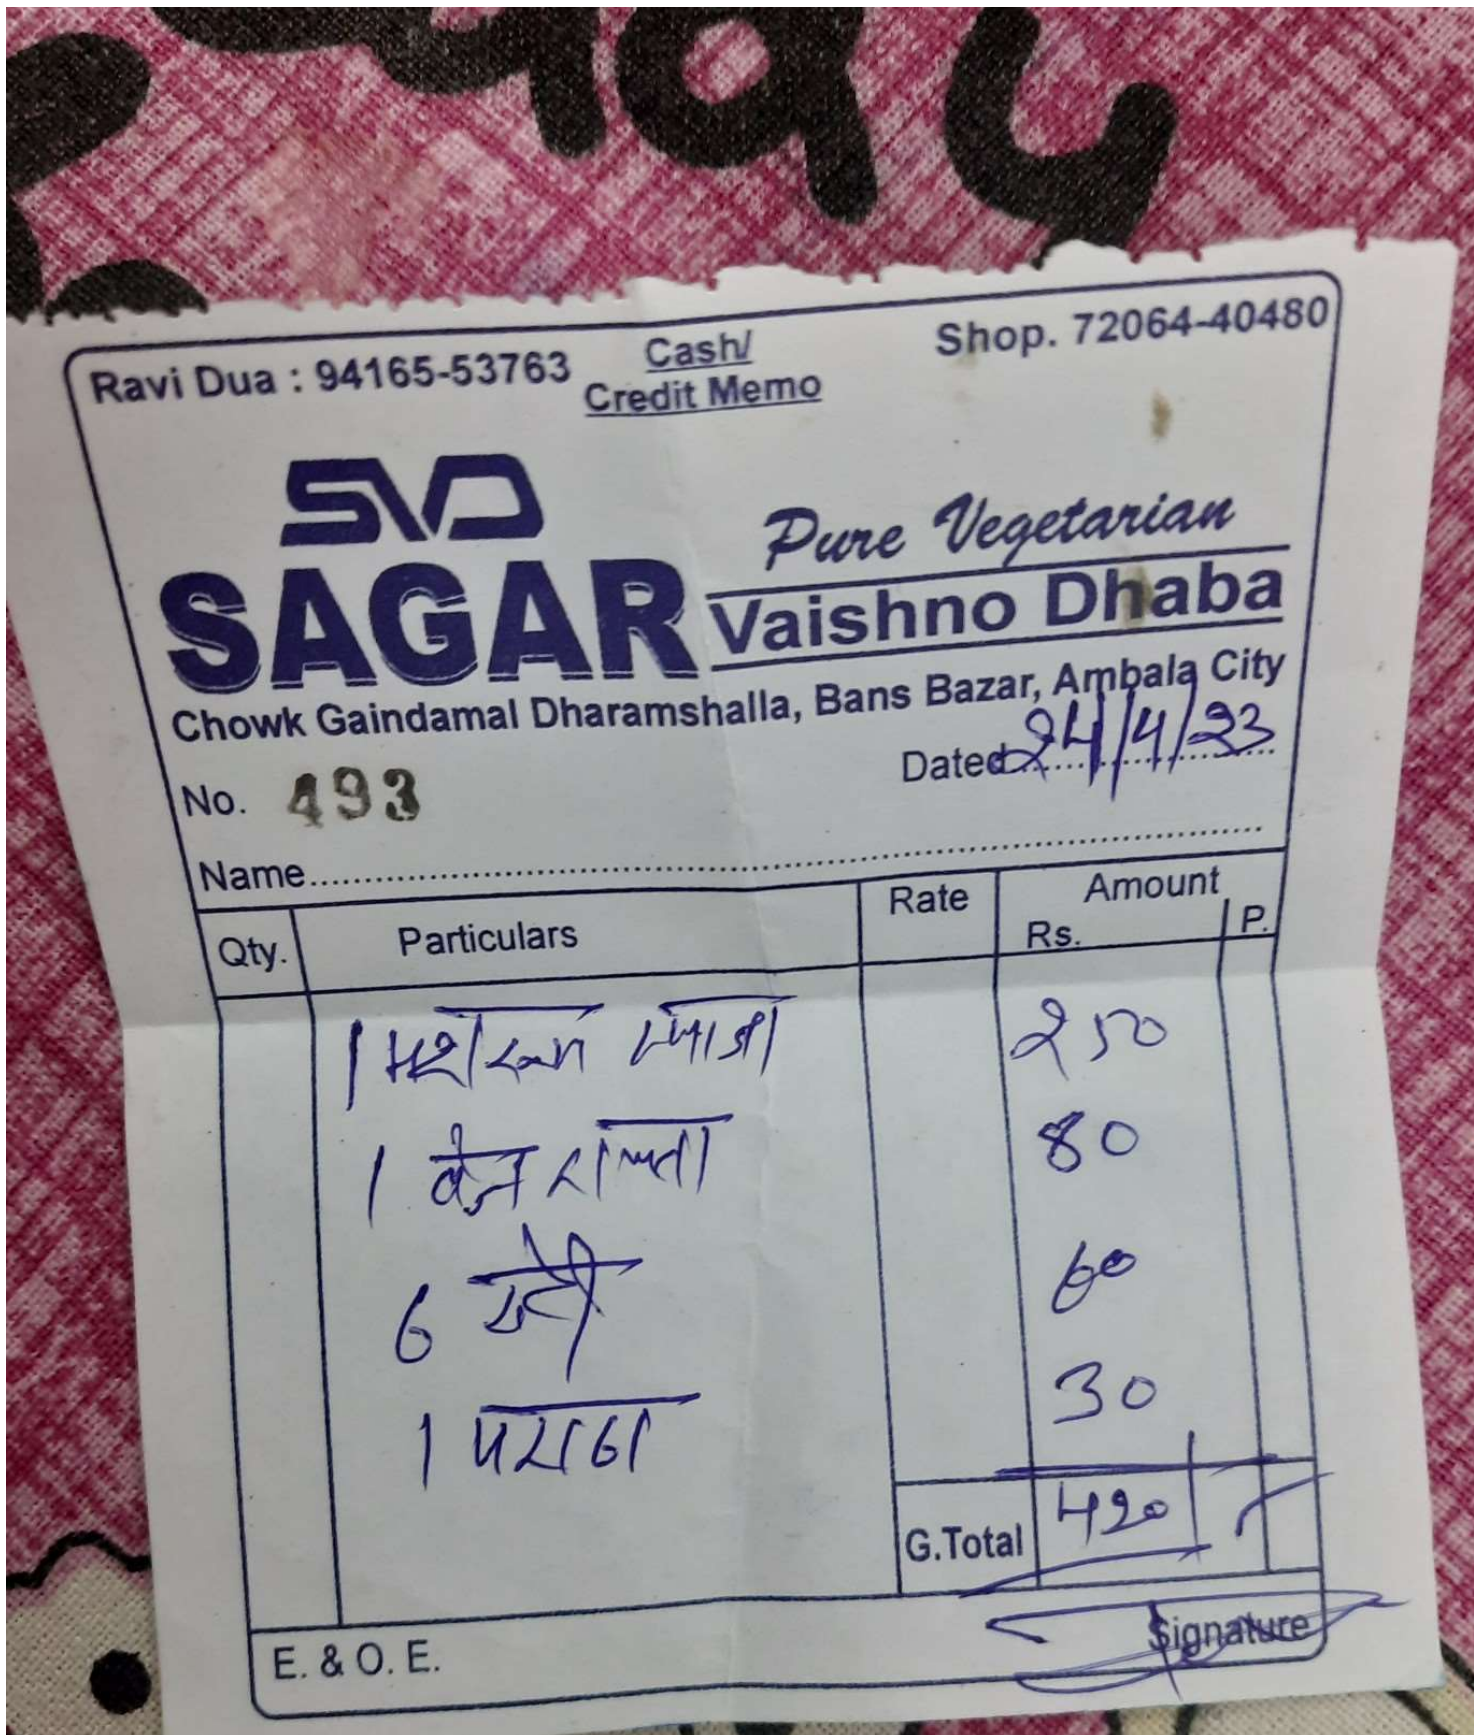 Ravi Dua : 94165-53763 Cash/ Credit Memo Shop. 72064-40480
SVD
Pure Vegetarian
SAGAR Vaishno Dhaba
Chowk Gaindamal Dharamshalla, Bans Bazar, Ambala City
No. 493 Dated 24/4/23
Name
Qty. Particulars Rate Amount Rs. P.
1 मशरूम प्याजा 250
1 वेज रायता 80
6 रोटी 60
1 पराठा 30
G.Total 420
Signature
E. & O. E.